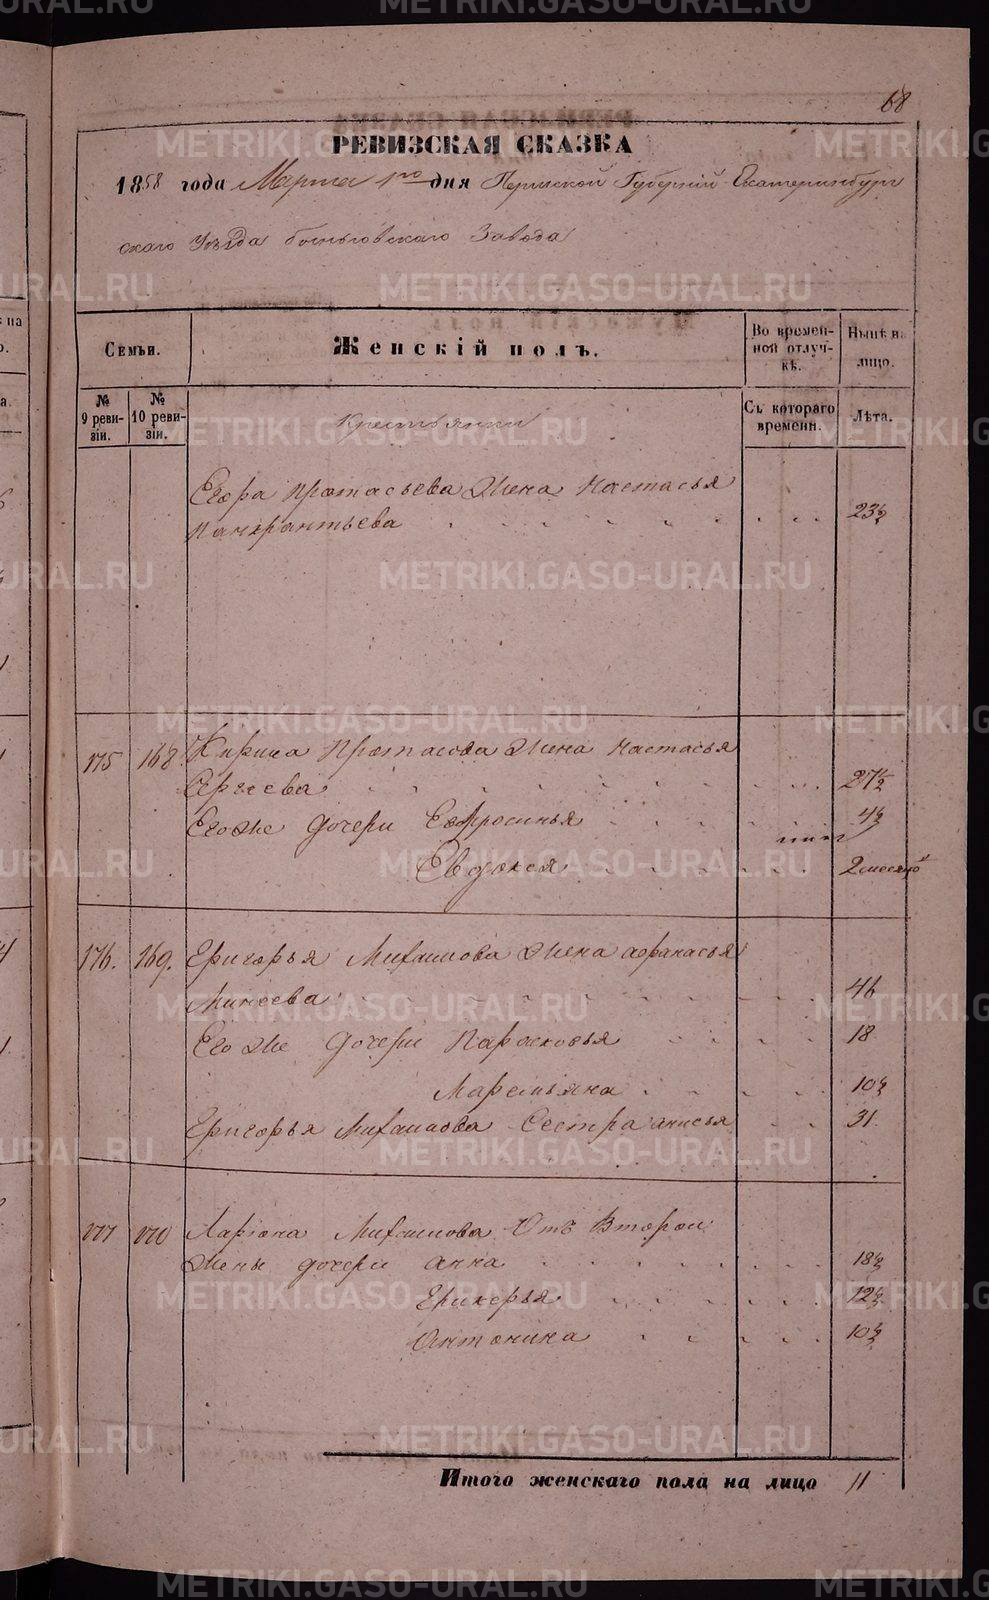 68
РЕВИЗСКАЯ СКАЗКА
1858 года Марта 1го дня Пермской Губерніи Екатеринбург
скаго Уѣзда Завода
Семьи.
Женскій полъ.
Во времен-
ной отлуч-
кѣ.
Нынѣ на
лицо.
№
9 реви-
зіи.
№
10 реви-
зіи.
Крестьянки
Съ котораго
времени.
Лѣта.
Егора Протасьева Жена Настасья
Панкрантьева 23½
175 168 Кирила Протасова Жена Настасья
Сергеева 27½
Егоже дочери Ефросинья 4½
Евдокея 2 месяцо
176. 169. Григорья Михаилова Жена афанасья
Минеева 46
Егоже дочери Парасковья 18
Маремьяна 10½
Григорья Михаилова Сестра анисья 31.
177 170 Ларіона Михаилова Отъ Второй
Жены дочери Анна 18½
12½
Антонина 10½
Итого женскаго пола на лицо 11
METRIKI.GASO-URAL.RU